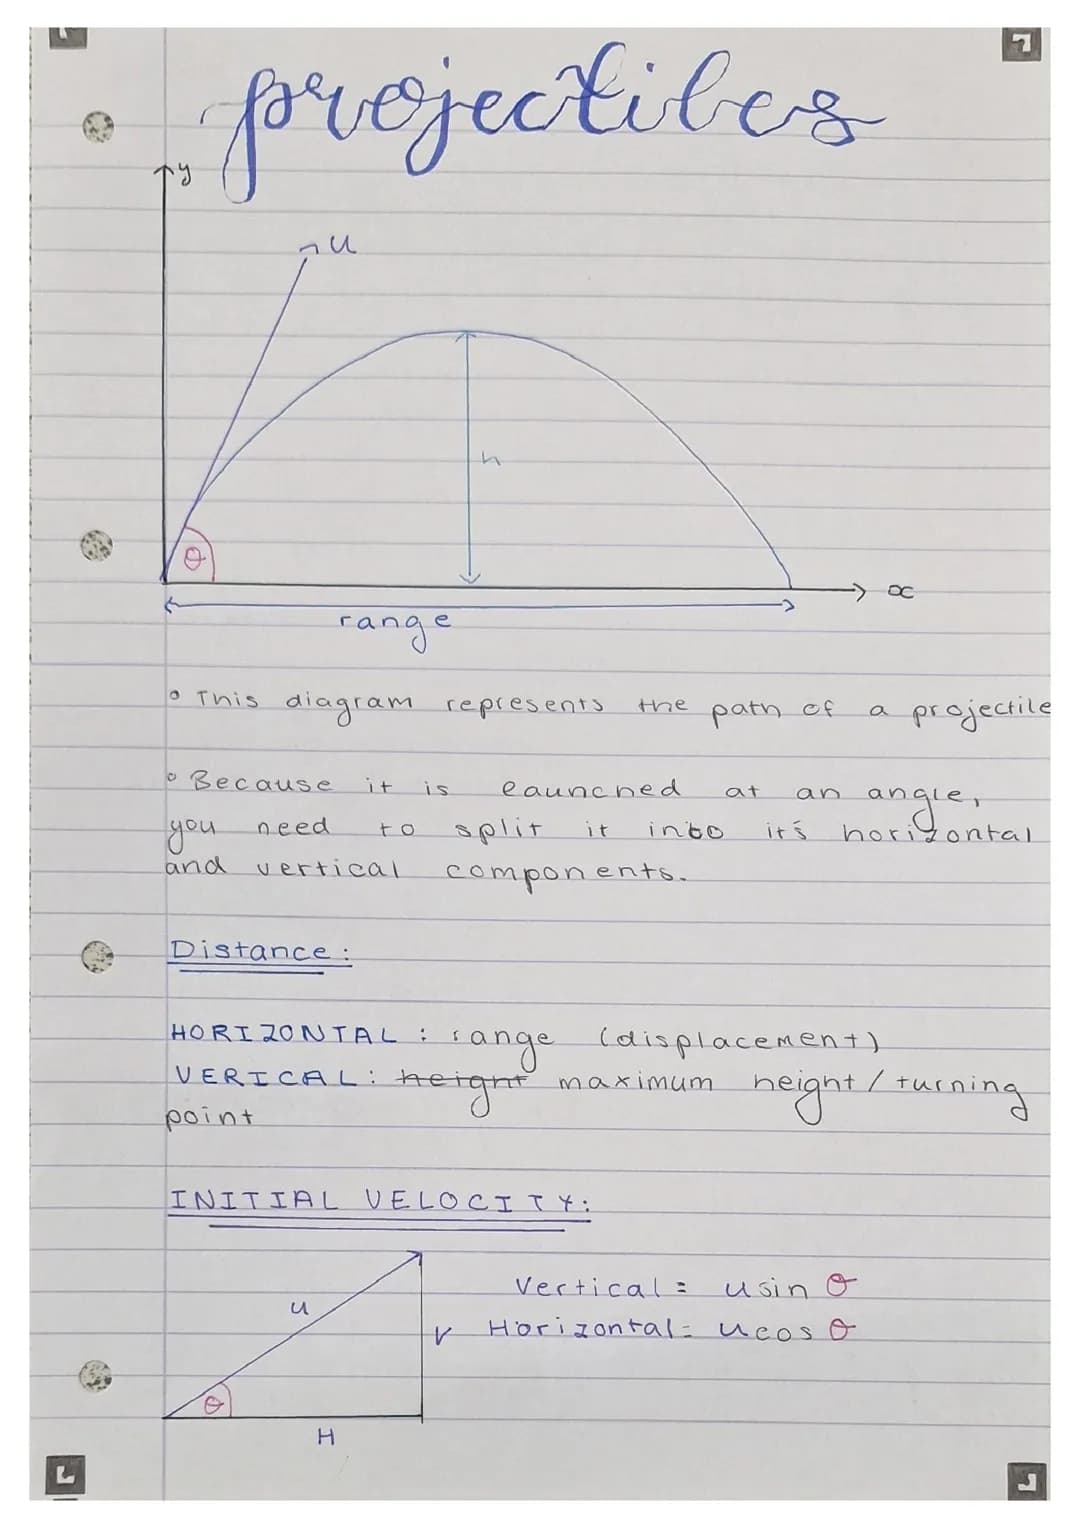 projectiles
y
u
h
θ
x
range
• This diagram represents the path of a projectile
• Because it is launched at an angle,
you need to split it into it's horizontal
and vertical components.
Distance:
HORIZONTAL: range (displacement)
VERICAL: height maximum height / turning
point
INITIAL VELOCITY:
Vertical = usin θ
u
V Horizontal = ucos θ
θ
H